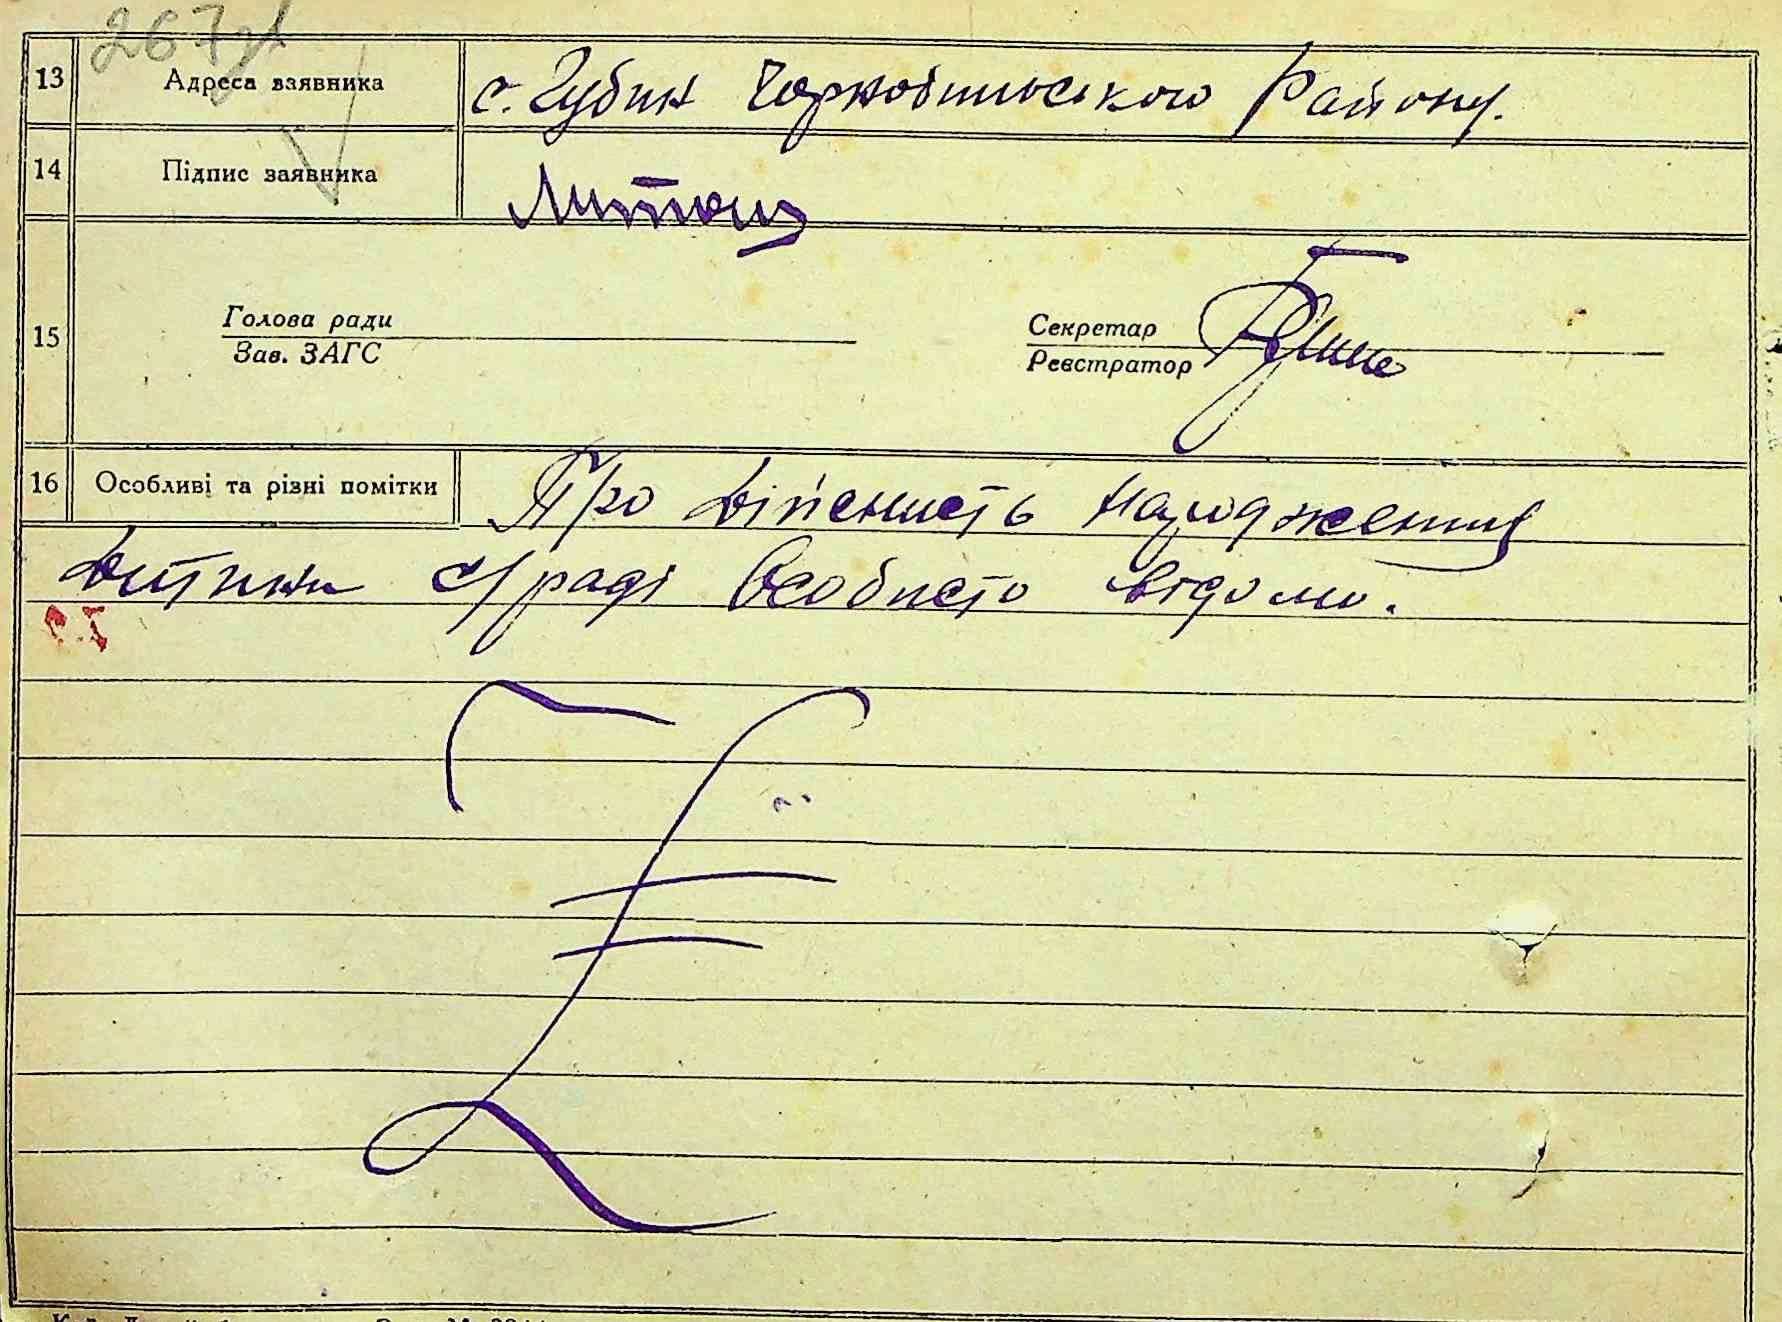 267
13 Адреса взявника с. Губин Чорнобильського Району.
14 Підпис заявника
Голова ради Секретар
15
Зав. ЗАГС Реєстратор
16 Особливі та різні помітки Про дійсність народження
дитини с/раді Особисто відомо.